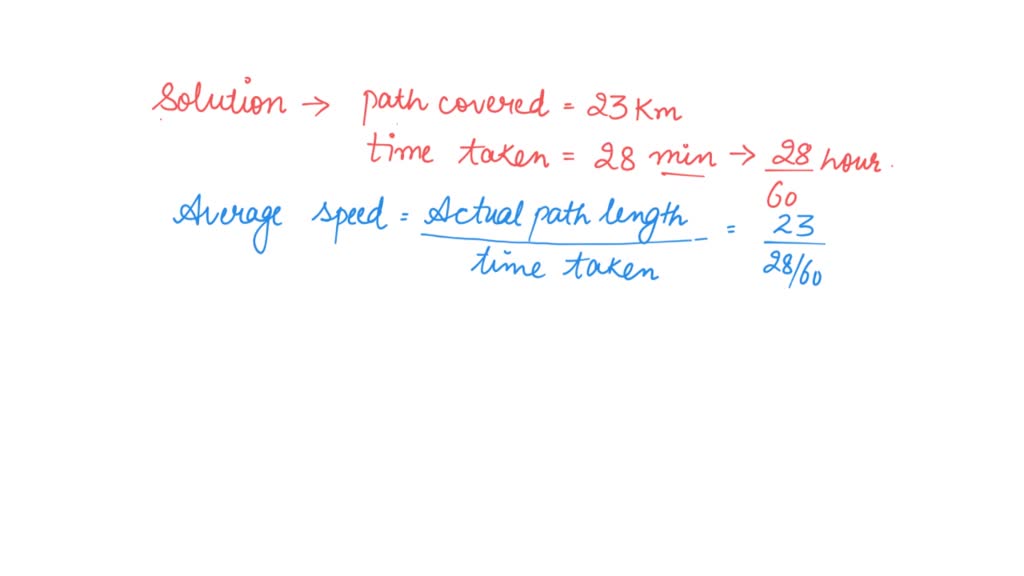 Solution → path covered = 23 Km
time taken = 28 min → 28/60 hour.
Average speed = Actual path length / time taken = 23 / 28/60